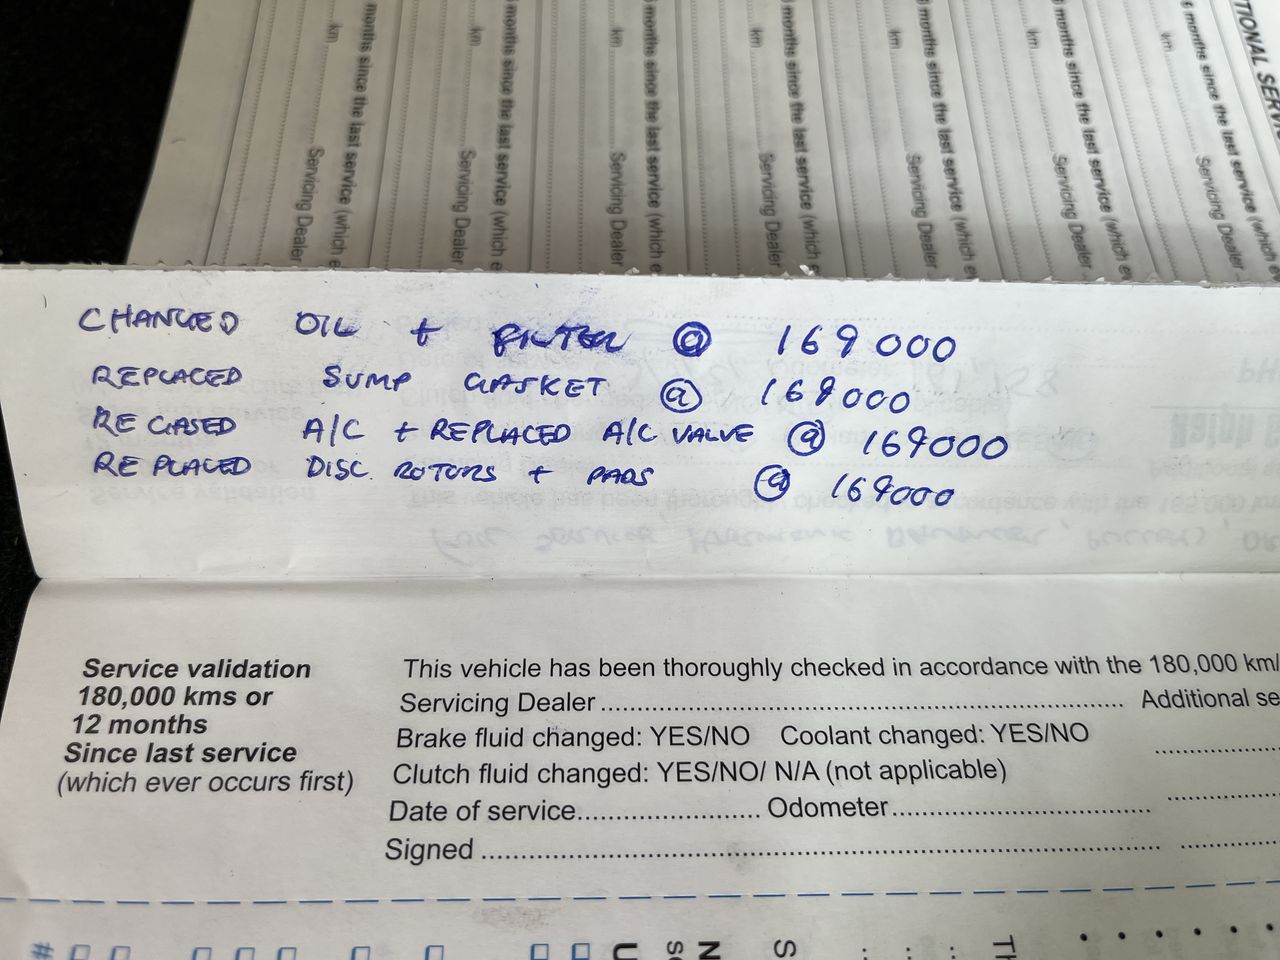 TIONAL SERVI
months since the last service (which e
km
Servicing Dealer
months since the last service (which e
km
Servicing Dealer
months since the last service (which e
km
Servicing Dealer
months since the last service (which e
km
Servicing Dealer
months since the last service (which e
km
Servicing Dealer
months since the last service (which ev
km
Servicing Dealer
6 months since the last service (which ev
km
Servicing Dealer
CHANGED OIL + FILTER @ 169 000
REPLACED SUMP GASKET @ 169000
REGASED A/C + REPLACED A/C VALVE @ 169000
REPLACED DISC ROTORS + PADS @ 169000
Service validation
180,000 kms or
12 months
Since last service
(which ever occurs first)
This vehicle has been thoroughly checked in accordance with the 180,000 km/
Servicing Dealer........................ Additional se
Brake fluid changed: YES/NO Coolant changed: YES/NO
Clutch fluid changed: YES/NO/ N/A (not applicable)
Date of service........................ Odometer........................
Signed ........................